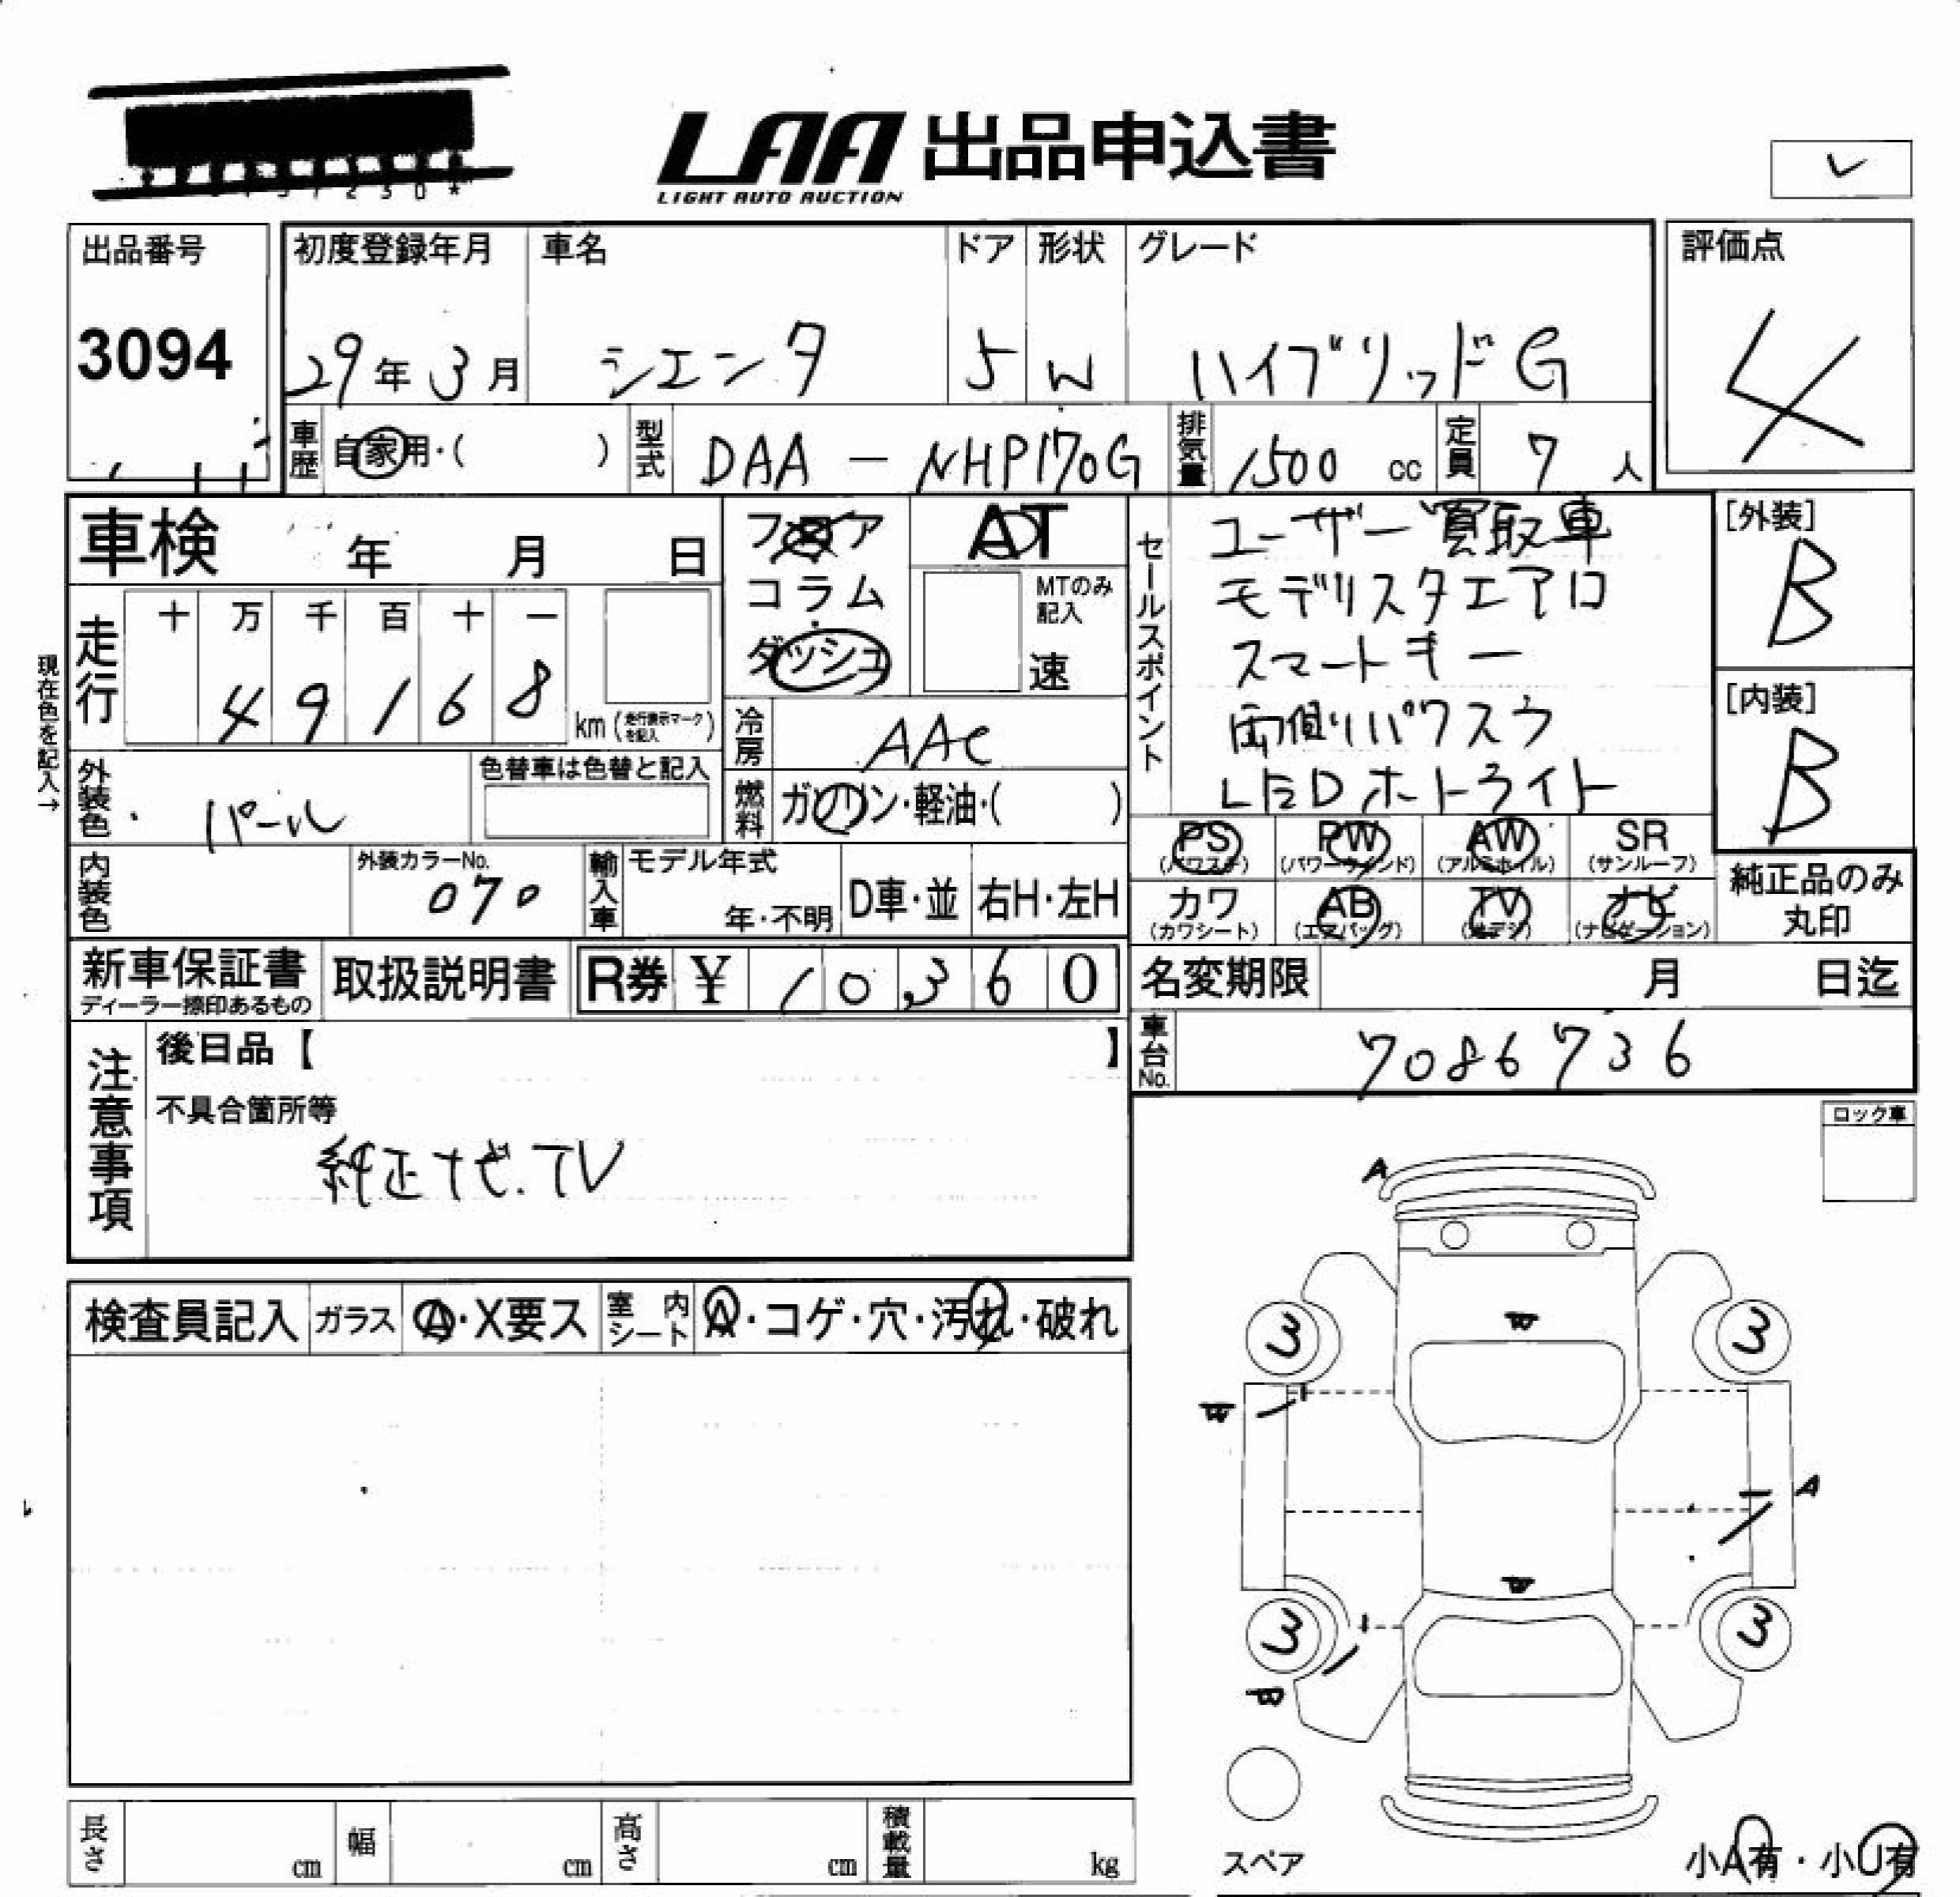 LAA 出品申込書
LIGHT AUTO AUCTION
出品番号
3094
初度登録年月
29年3月
車名
シエンタ
ドア
5
形状
W
グレード
ハイブリッドG
評価点
4
車歴
自家用・( )
型式
DAA - NHP170G
排気量
1500 cc
定員
7 人
車検 年 月 日
フロア
コラム
ダッシュ
AT
MTのみ
記入
速
セールスポイント
ユーザー買取車
モデリスタエアロ
スマートキー
両側パワスラ
LEDホトライト
[外装]
B
[内装]
B
現在色を記入→
走行
十 万 千 百 十 一
4 9 1 6 8
km (走行表示マークを記入)
冷房
AAC
燃料
ガソリン・軽油・( )
外装色
パール
色替車は色替と記入
内装色
外装カラーNo.
070
輸入車
モデル年式
年・不明
D車・並
右H・左H
PS
(パワステ)
PW
(パワーウインド)
AW
(アルミホイル)
SR
(サンルーフ)
カワ
(カワシート)
AB
(エアバッグ)
TV
(地デジ)
ナビ
(ナビゲーション)
純正品のみ
丸印
新車保証書
ディーラー捺印あるもの
取扱説明書
R券 ¥ 10,360
名変期限 月 日迄
車台No.
7086736
注意事項
後日品【 】
不具合箇所等
純正ナビ.TV
ロック車
検査員記入
ガラス
A・X要ス
室内シート
A・コゲ・穴・汚れ・破れ
A
3
3
W
A
3
3
スペア
小A有・小U有
長さ cm
幅 cm
高さ cm
積載量 kg